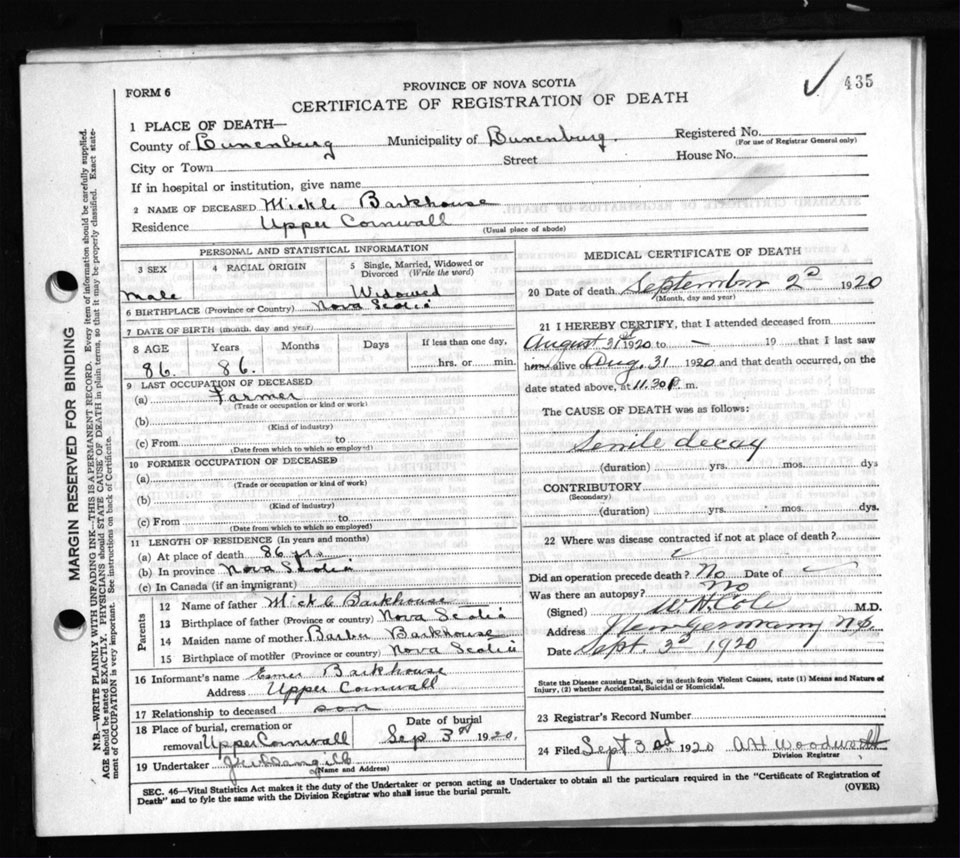 435
FORM 6
PROVINCE OF NOVA SCOTIA
CERTIFICATE OF REGISTRATION OF DEATH
1 PLACE OF DEATH—
County of Lunenburg Municipality of Lunenburg. Registered No.
(For use of Registrar General only)
City or Town Street House No.
If in hospital or institution, give name
2 NAME OF DECEASED Mickle Barkhouse
Residence Upper Cornwall
(Usual place of abode)
PERSONAL AND STATISTICAL INFORMATION
3 SEX 4 RACIAL ORIGIN 5 Single, Married, Widowed or Divorced (Write the word)
Male Widowed
6 BIRTHPLACE (Province or Country) Nova Scotia
7 DATE OF BIRTH (month, day and year)
8 AGE Years Months Days If less than one day,
86. 86. hrs. or min.
9 LAST OCCUPATION OF DECEASED
(a) Farmer
(Trade or occupation or kind or work)
(b)
(Kind of industry)
(c) From to
(Date from which to which so employed)
10 FORMER OCCUPATION OF DECEASED
(a)
(Trade or occupation or kind of work)
(b)
(Kind of industry)
(c) From to
(Date from which to which so employed)
11 LENGTH OF RESIDENCE (In years and months)
(a) At place of death 86 yrs
(b) In province Nova Scotia
(c) In Canada (if an immigrant)
Parents
12 Name of father Mickle Barkhouse
13 Birthplace of father (Province or country) Nova Scotia
14 Maiden name of mother Barber Barkhouse
15 Birthplace of mother (Province or country) Nova Scotia
16 Informant's name Barkhouse
Address Upper Cornwall
17 Relationship to deceased son
18 Place of burial, cremation or removal Upper Cornwall Date of burial Sep 3rd 1920.
19 Undertaker
(Name and Address)
MEDICAL CERTIFICATE OF DEATH
20 Date of death September 2d 1920
(Month, day and year)
21 I HEREBY CERTIFY, that I attended deceased from
August 31st 1920 to — 19 that I last saw
him alive on Aug. 31 1920 and that death occurred, on the
date stated above, at 11.30 P. m.
The CAUSE OF DEATH was as follows:
Senile decay
(duration) yrs. mos. dys
CONTRIBUTORY
(Secondary)
(duration) yrs. mos. dys.
22 Where was disease contracted if not at place of death?
Did an operation precede death? No Date of
Was there an autopsy? No
(Signed) W. N. Cole M.D.
Address New Germany N.S.
Date Sept. 3d 1920
State the Disease causing Death, or in death from Violent Causes, state (1) Means and Nature of
Injury, (2) whether Accidental, Suicidal or Homicidal.
23 Registrar's Record Number
24 Filed Sept 3rd 1920 A H Woodworth
Division Registrar
SEC. 46—Vital Statistics Act makes it the duty of the Undertaker or person acting as Undertaker to obtain all the particulars required in the "Certificate of Registration of
Death" and to fyle the same with the Division Registrar who shall issue the burial permit. (OVER)
MARGIN RESERVED FOR BINDING
N.B.—WRITE PLAINLY WITH UNFADING INK—THIS IS A PERMANENT RECORD. Every item of information should be carefully supplied.
AGE should be stated EXACTLY. PHYSICIANS should STATE CAUSE OF DEATH in plain terms, so that it may be properly classified. Exact state-
ment of OCCUPATION is very important. See instructions on back of Certificate.